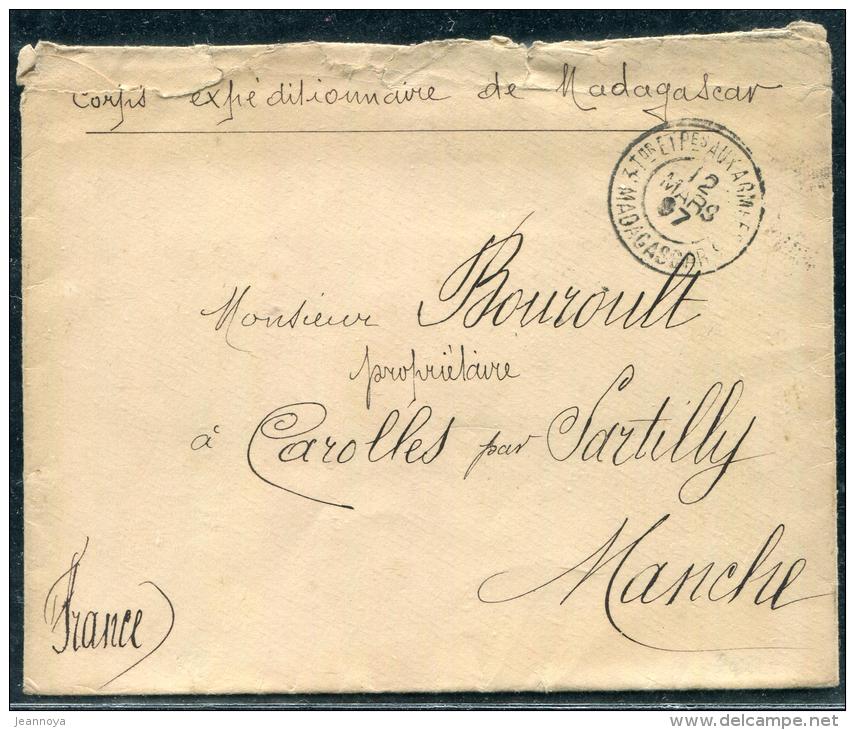 Corps expéditionnaire de Madagascar
TOR ET PES AUX ARMEES
12
MARS
97
MADAGASCAR
Monsieur Bouroult
propriétaire
à Carolles par Sartilly
Manche
France
jeannoya
delcampe.net